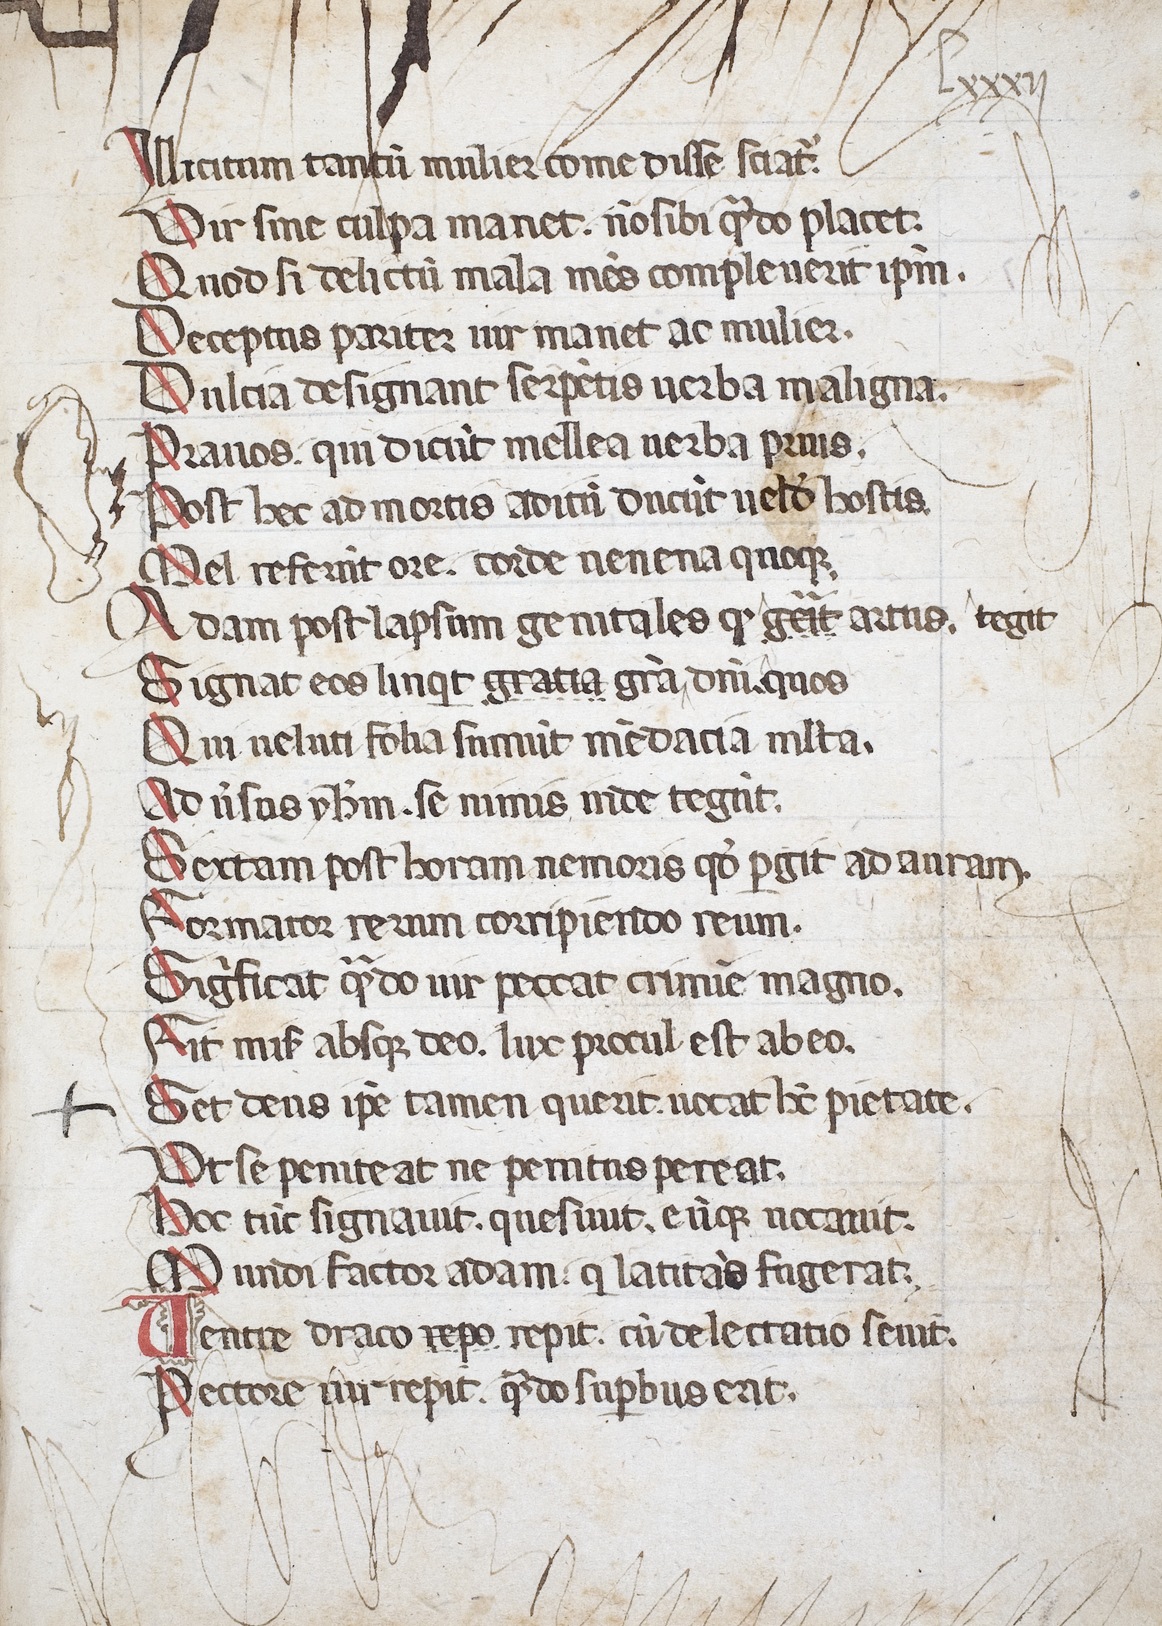 Lxxxij
Illicitum tantū mulier come disse sciat᷑.
Vir sine culpa manet. n̄o sibi qᷓdo placet.
Quod si delictū mala mēs compleuerit ip̄m.
Deceptus pariter uir manet ac mulier.
Dulcia designant serpētis uerba maligna.
Prauos. qui dicūt mellea uerba prius.
Post hec ad mortis aditū ducūt hostis.
Mel referūt ore. corde uenena quoqꝫ
Adam post lapsum genitales artus. tegit
Signat eos linqt gratia grā dn̄i. quos
Qui ueluti folia sumūt mēdacia ml̄ta.
Ad se nimis inde tegūt.
Sextam post horam nemoris qͦ ꝑgit ad auram.
Formator rerum corripiendo reum.
Sigͥficat qᷓdo uir peccat crimīe magno.
Fit absqꝫ deo. lux procul est ab eo.
Set deus ip̄e tamen querit. uocat hc̄ pietate.
Vt se peniteat ne penitus pereat.
Hoc tūc signauit. quesiuit. eūqꝫ uocauit.
Mundi factor adam. q latitās fugerat.
Uentre draco repo repit. cū delectatio seuit.
Pectore uir repit. qᷓdo suꝑbus erit.